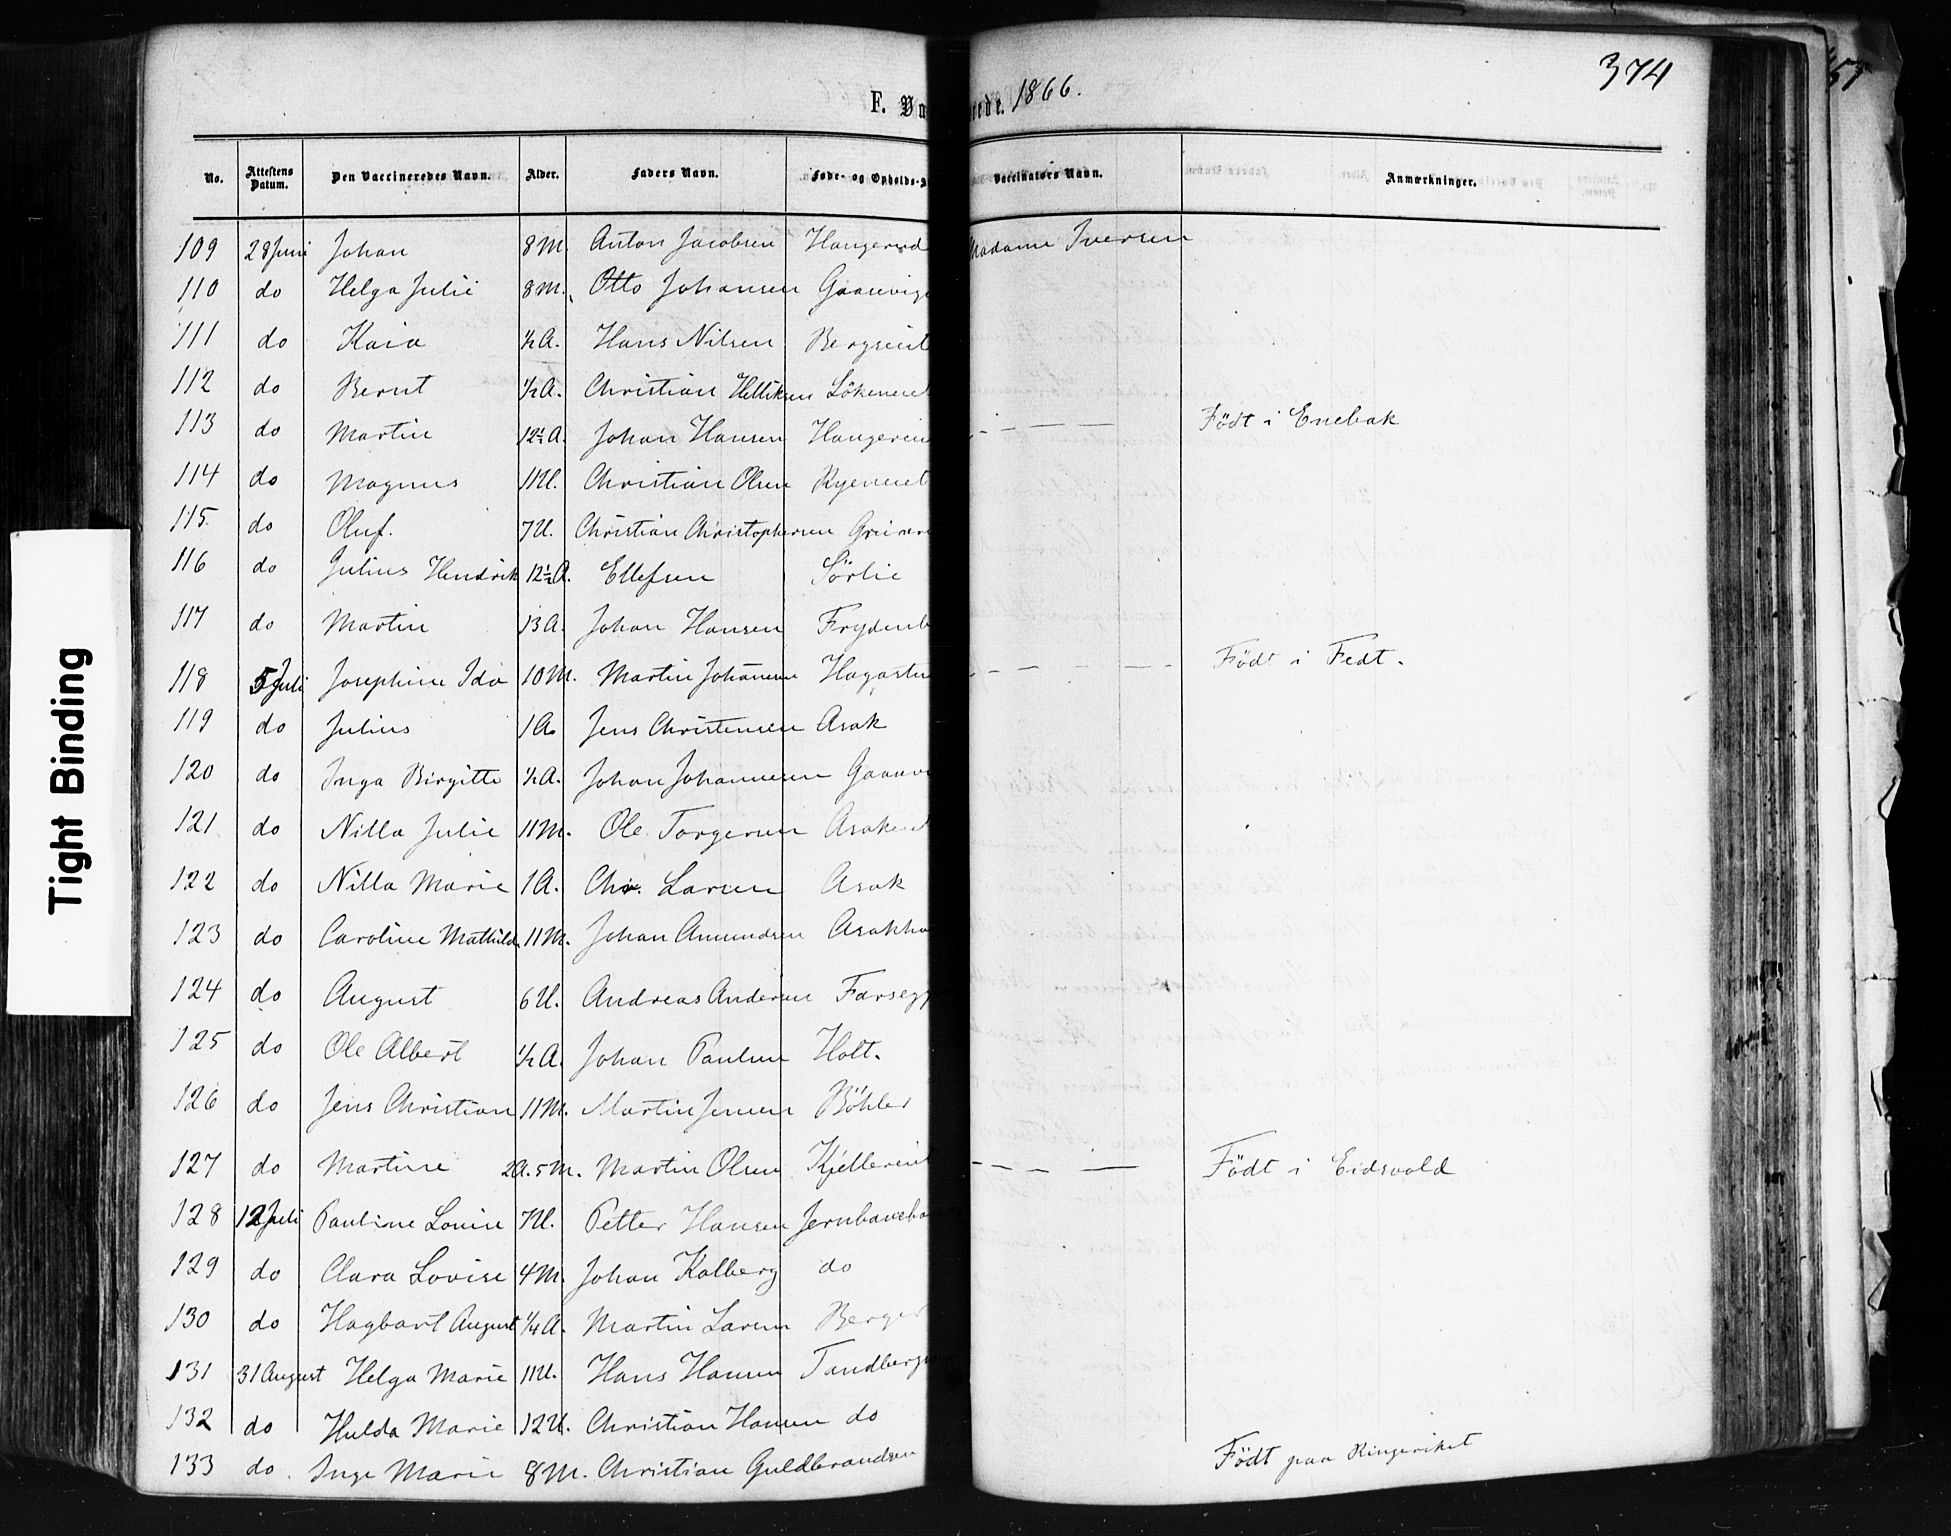 374
F. Va
rede. 1866.
No. Attestens Datum. Den Vaccineredes Navn. Alder. Faders Navn. Føde- og Opholds- Vaccinators Navn. Anmærkninger.
109 28 Juni Johan 8 M. Anton Jacobsen Haugerud Madame Iversen
110 do Helga Julie 8 M. Otto Johansen Gaasevig
111 do Kaia ½ A. Hans Nilsen Bergseiet
112 do Bernt ½ A. Christian Løkeneiet
113 do Martin 12½ A. Johan Hansen Haugerein — — — Födt i Enebak
114 do Magnus 11 U. Christian Olsen Ryeneiet
115 do Oluf. 7 U. Christian Christophersen
116 do Julius Hendrik 12½ A. Ellefsen Sörlie
117 do Martin 13 A. Johan Hansen Frydenb
118 5 Juli Josephine Ida 10 M. Martin Johansen — — — Födt i Fedt.
119 do Julius 1 A. Jens Christensen Asak
120 do Inga Birgitte ½ A. Johan Johannesen
121 do Nilla Julie 11 M. Ole Torgersen Asakeiet
122 do Nilla Marie 1 A. Chr. Larsen Asak
123 do Caroline Mathilde 11 M. Johan Amundsen Asakha
124 do August 6 U. Andreas Andersen Farsegg
125 do Ole Albert ½ A. Johan Paulsen Holt.
126 do Jens Christian 11 M. Martin Jensen Böhler
127 do Martine 2 A. 5 M. Martin Olsen Kjellereiet — — — Födt i Eidsvold
128 12 Juli Pauline Lovise 7 U. Petter Hansen Jernbaneba
129 do Clara Lovise 4 M. Johan Kalberg do
130 do Hagbart August ¼ A. Martin Larsen Berger
131 31 August Helga Marie 11 U. Hans Hansen Tandbergs
132 do Hulda Marie 12 U. Christian Hansen do
133 do. Inge Marie 8 M. Christian Guldbrandsen Födt paa Ringeriket
Tight Binding